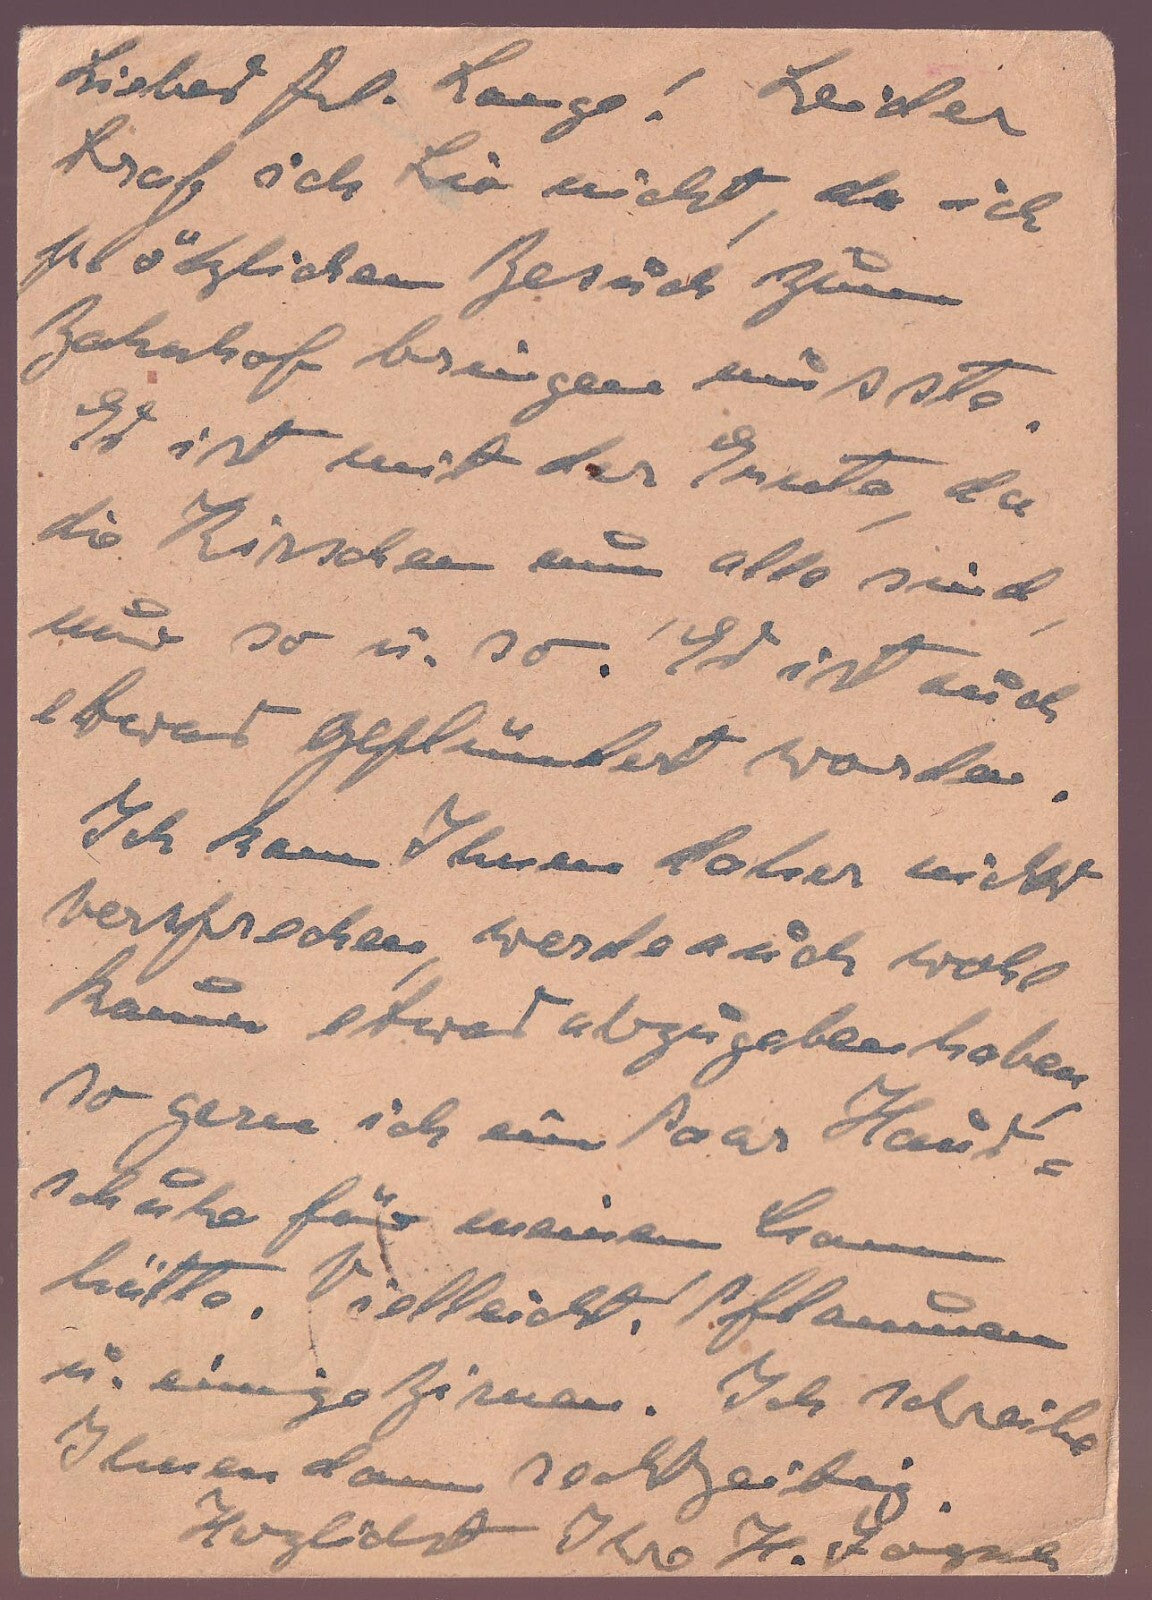 Liebes Frl. Lange! Leider
traf ich Sie nicht, da ich
plötzlichen Besuch zum
Bahnhof bringen müsste.
Es ist mit der Ernte, da
die Kirschen nun alle sind,
nur so u. so! Es ist auch
etwas geplündert worden.
Ich kann Ihnen daher nicht
versprechen, werde auch wohl
kaum etwas abzugeben haben,
so gern ich ein Paar Hand=
schuhe für meinen
hätte. Vielleicht! Pflaumen
u. einige Birnen. Ich schreibe
Ihnen dann rechtzeitig.
Herzlichst Ihre H.